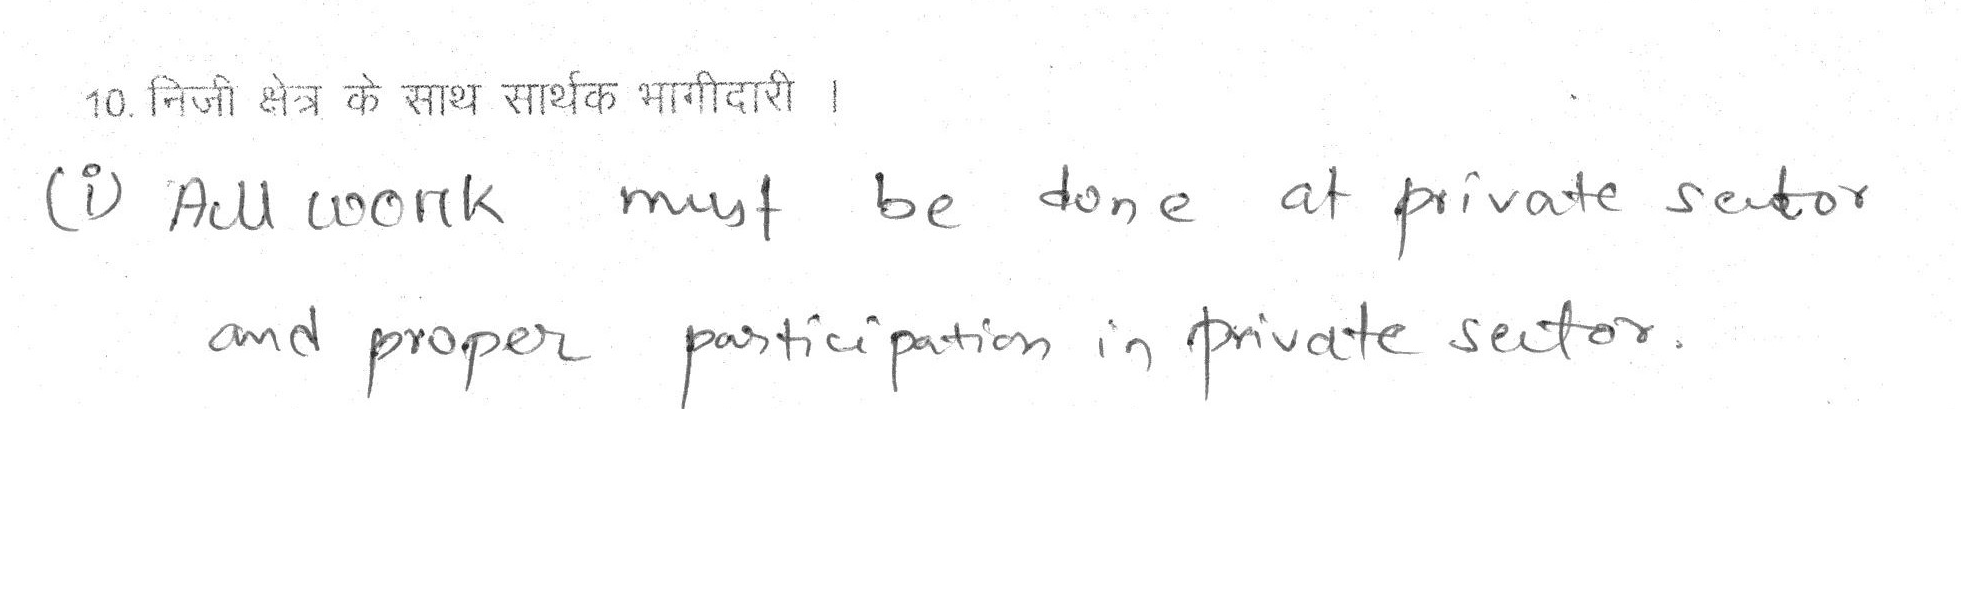 10. निजी क्षेत्र के साथ सार्थक भागीदारी ।
(i) All work must be done at private sector
and proper participation in private sector.